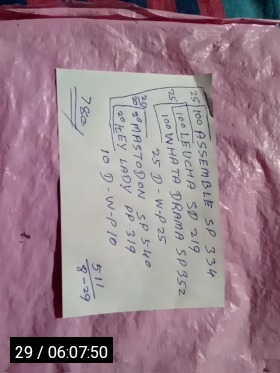 25 100 ASSEMBLE SP 334
100 LEUCHA SD 219
25 100 WHATA DRAMA SP352
25 D-W-P25
20 20 MASTODON SP 540
20 KEY LADY PP 319
10 D-W-P10
511
8-29
29 / 06:07:50